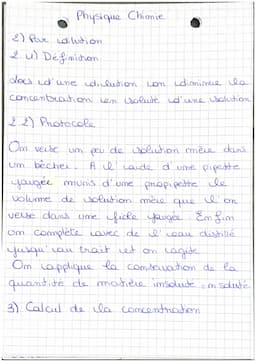 Physique Chimie
2) Par dilution
2.1) Définition
Lors d'une dilution on diminue la
concentration en soluté d'une solution
2.2) Protocole
On verse un peu de solution mère dans
un bécher. A l'aide d'une pipette
jaugée munis d'une propipette le
volume de solution mère que l'on
verse dans une fiole jaugée. Enfin
on complète avec de l'eau distillé
jusqu'au trait et on agite.
On applique la conservation de la
quantité de matière
3) Calcul de la concentration